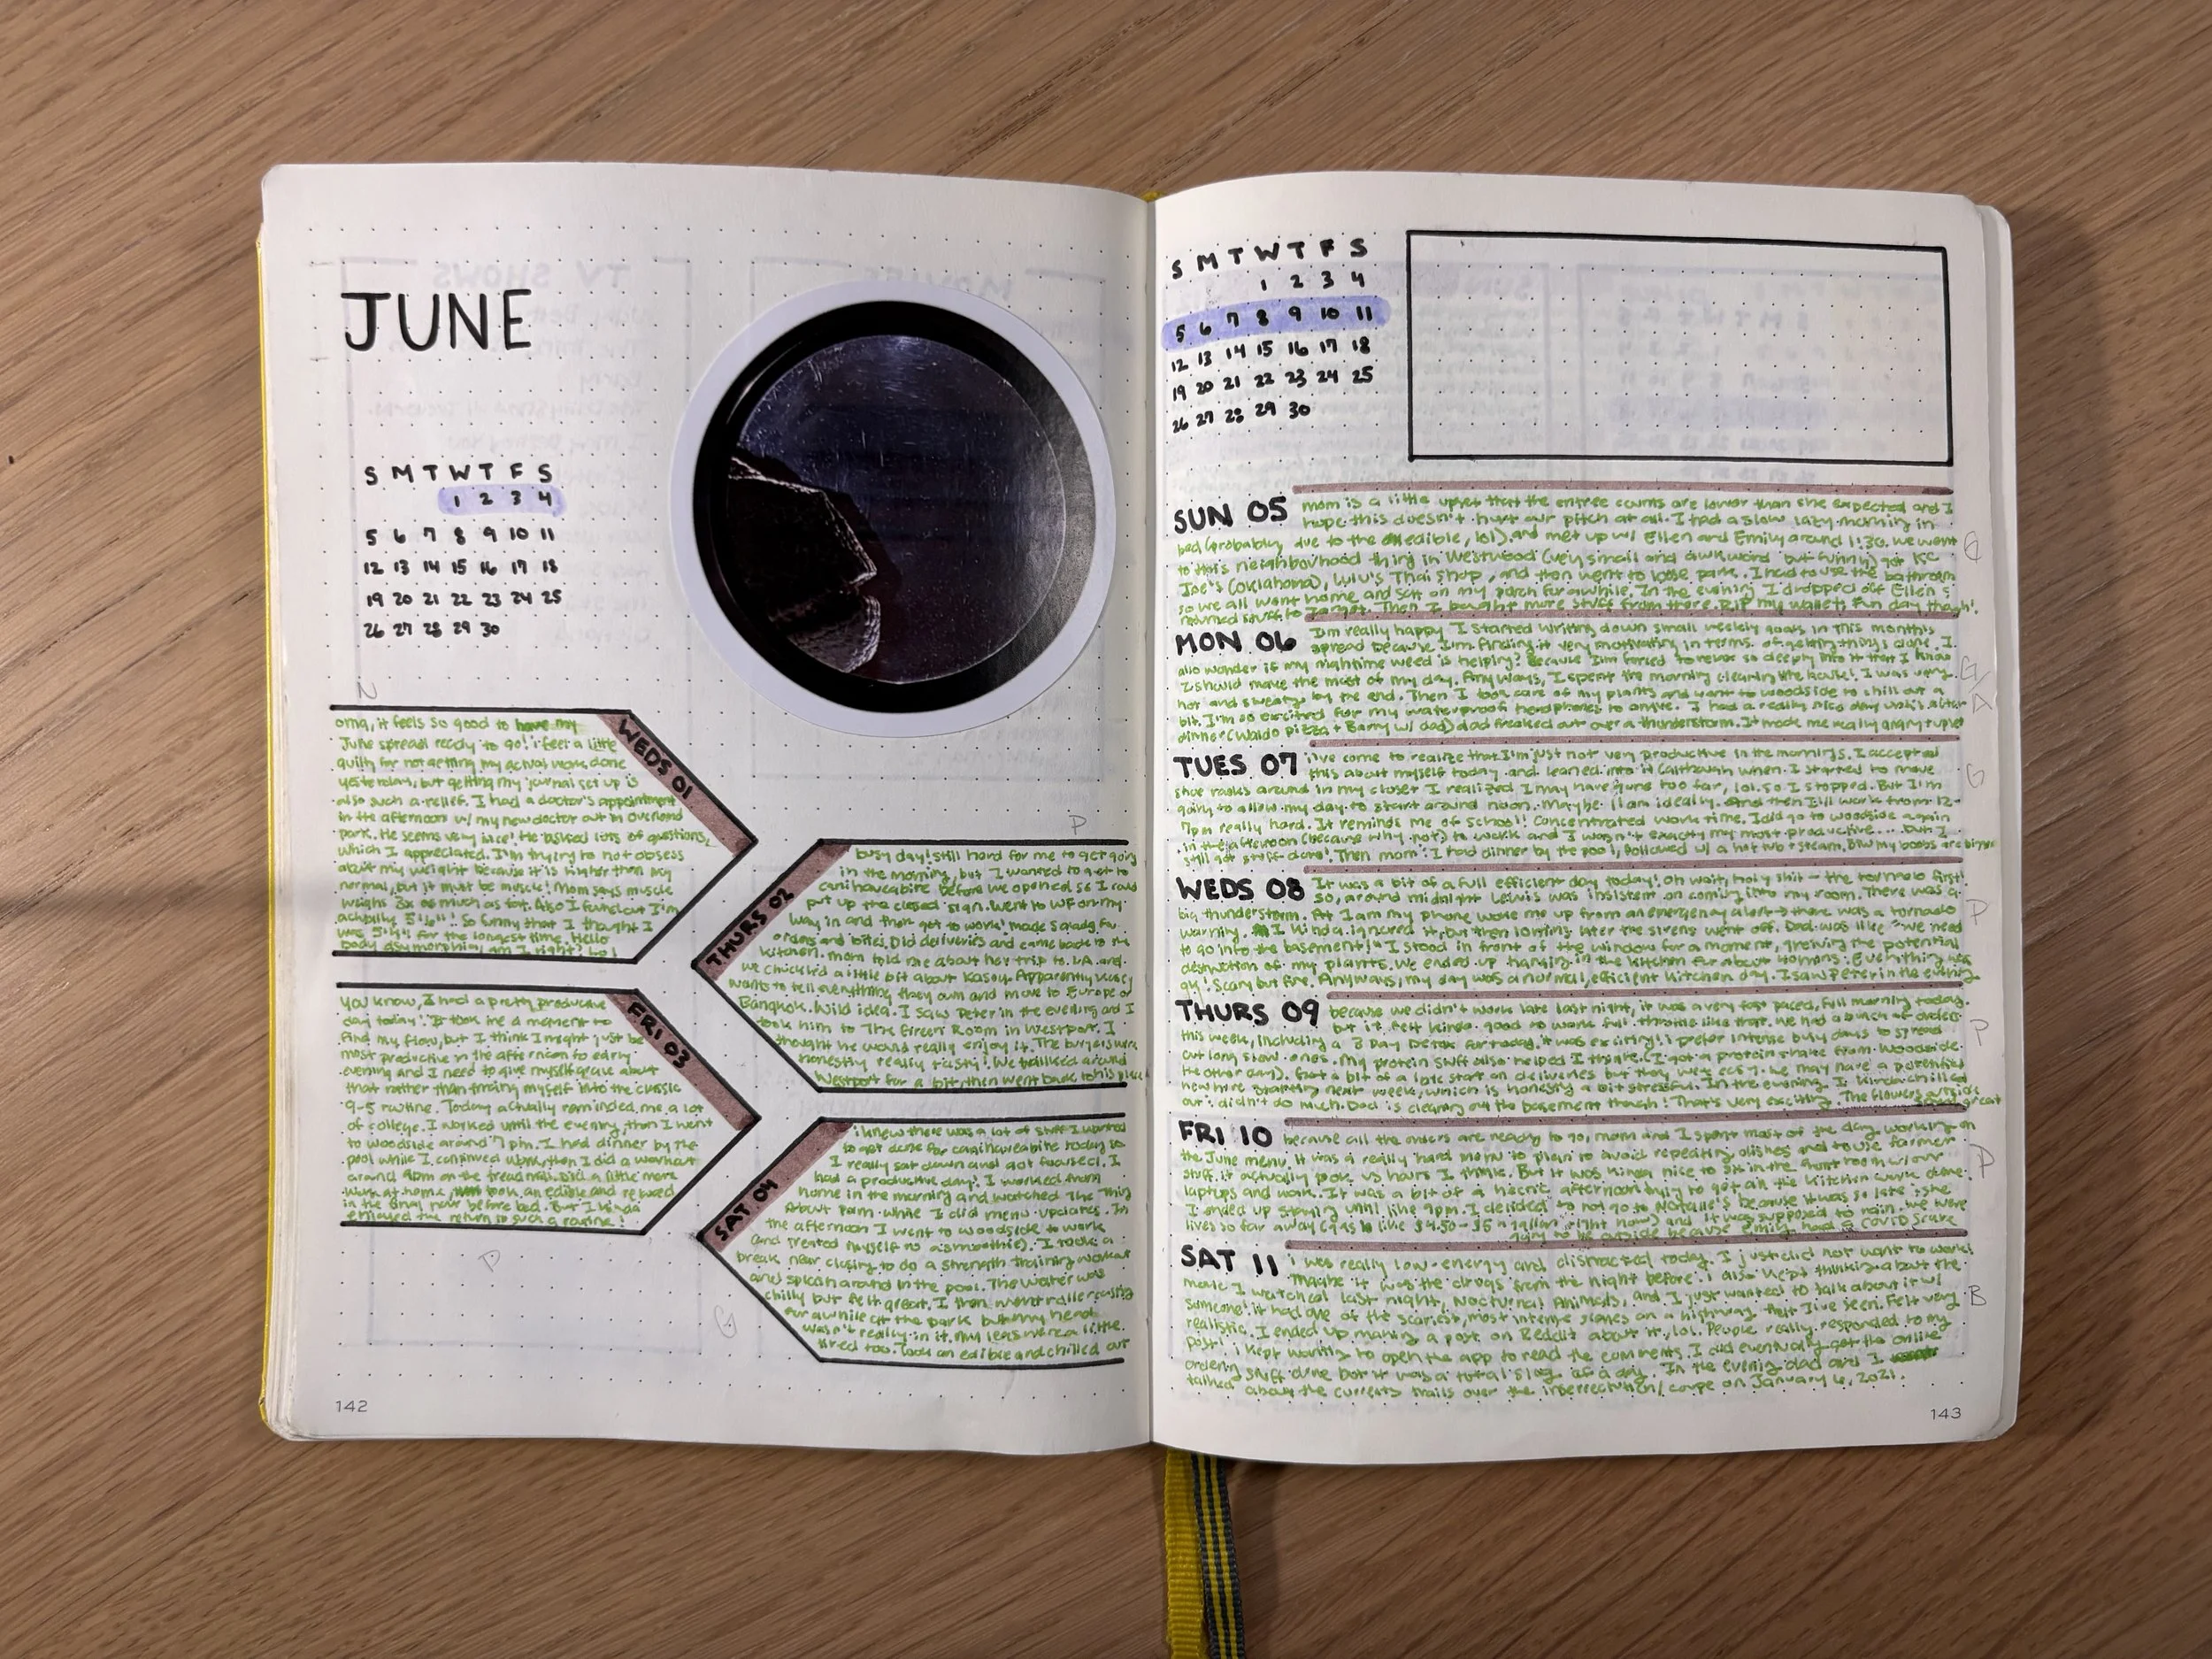 JUNE
S M T W T F S
1 2 3 4
5 6 7 8 9 10 11
12 13 14 15 16 17 18
19 20 21 22 23 24 25
26 27 28 29 30
N
WEDS 01
omg, it feels so good to have my
June spread ready to go! i feel a little
guilty for not getting my actual work done
yesterday, but getting my journal set up is
also such a relief. I had a doctor's appointment
in the afternoon w/ my new doctor out in Overland
park. He seems very nice! He asked lots of questions,
which I appreciated. I'm trying to not obsess
about my weight because it is higher than my
normal, but it must be muscle! Mom says muscle
weighs 3x as much as fat. Also I found out I'm
actually So funny that I thought I
was for the longest time. Hello
body dysmorphia, am I right? Lol
P
THURS 02
busy day! Still hard for me to get going
in the morning, but I wanted to get to
canihaveabite before we opened so I could
put up the closed sign. Went to WF on my
way in and then got to work! made salads for
orders and bites. Did deliveries and came back to the
kitchen. mom told me about her trip to LA and
we chuckled a little bit about Kasey. Apparently Kasey
wants to sell everything they own and move to Europe or
Bangkok. Wild idea. I saw Peter in the evening and I
took him to The Green Room in Westport. I
thought he would really enjoy it. The burgers were
honestly really tasty! We walked around
Westport for a bit, then went back to his place
FRI 03
you know, I had a pretty productive
day today! It took me a moment to
find my flow, but I think I might just be
most productive in the afternoon to early
evening and I need to give myself grace about
that rather than forcing myself into the classic
9-5 routine. Today actually reminded me a lot
of college. I worked until the evening, then I went
to woodside around 7 pm. I had dinner by the
pool while I continued work, then I did a workout
around 9pm on the treadmill. Did a little more
work at home, took an edible and relaxed
in the final hour before bed. But I kinda
enjoyed the return to such a routine!
P
SAT 04
i knew there was a lot of stuff I wanted
to get done for canihaveabite today so
I really sat down and got focused. I
had a productive day! I worked from
home in the morning and watched The Thing
About Pam while I did menu updates. In
the afternoon I went to woodside to work
(and treated myself to a smoothie). I took a
break near closing to do a strength training workout
and splash around in the pool. The water was
chilly but felt great. I then went rollerskating
for awhile at the park but my head
wasn't really in it. My legs were a little
tired too. Took an edible and chilled out
G
142
S M T W T F S
1 2 3 4
5 6 7 8 9 10 11
12 13 14 15 16 17 18
19 20 21 22 23 24 25
26 27 28 29 30
SUN 05
mom is a little upset that the entree counts are lower than she expected and I
hope this doesn't hurt our pitch at all. I had a slow lazy morning in
bed (probably due to the edible, lol) and met up w/ Ellen and Emily around 1:30. We went
to this neighborhood thing in Westwood (very small and awkward but funny) got KC
Joe's (Oklahoma), Lulu's Thai Shop, and then went to Loose park. I had to use the bathroom
so we all went home and sat on my porch for awhile. In the evening I dropped off Ellen &
returned stuff to Target. Then I bought more stuff from there. RIP my wallet. Fun day though!
G
MON 06
I'm really happy I started writing down small weekly goals in this month's
spread because I'm finding it very motivating in terms of getting things done. I
also wonder if my nightime weed is helping? Because I'm forced to relax so deeply into it that I know
I should make the most of my day. Anyways, I spent the morning cleaning the house! I was very
hot and sweaty by the end. Then I took care of my plants and went to woodside to chill out a
bit. I'm so excited for my waterproof headphones to arrive. I had a really nice day until after
dinner (Waldo pizza + Barry w/ dad) dad freaked out over a thunderstorm. It made me really angry + upset
G/A
TUES 07
i've come to realize that I'm just not very productive in the mornings. I accepted
this about myself today and leaned into it (although when I started to move
shoe racks around in my closet I realized I may have gone too far, lol. so I stopped. But I'm
going to allow my day to start around noon. Maybe 11am ideally. And then I'll work from 12-
7pm really hard. It reminds me of school! Concentrated work time. I did go to woodside again
in the afternoon (because why not) to work and I wasn't exactly my most productive.... but I
still got stuff done! Then mom + I had dinner by the pool, followed w/ a hot tub + steam. BTW my boobs are bigger
G
WEDS 08
It was a bit of a full efficient day today! Oh wait, holy shit - the tornado first!
So, around midnight Lewis was insistent on coming into my room. There was a
big thunderstorm. At 1 am my phone woke me up from an emergency alert → there was a tornado
warning. I kinda ignored it, but then 10 mins later the sirens went off. Dad was like "we need
to go into the basement!" I stood in front of the window for a moment, the potential
destruction of my plants. We ended up hanging in the kitchen for about 40 mins. Everything was
ok! Scary but fine. Anyways, my day was a normal, efficient kitchen day. I saw Peter in the evening
P
THURS 09
because we didn't work late last night, it was a very fast paced, full morning today.
but it felt kinda good to work full throttle like that. We had a bunch of orders
this week, including a 3 Day Detox for today. It was exciting! I prefer intense busy days to spread
out long slow ones. My protein stuff also helped I think. (I got a protein shake from Woodside
the other day). Got a bit of a late start on deliveries but they were easy. We may have a potential
new hire starting next week, which is honestly a bit stressful. In the evening I kinda chilled
out + didn't do much. Dad is cleaning out the basement though! That's very exciting. The flowers outside
great
P
FRI 10
because all the orders are ready to go, mom and I spent most of the day working on
the June menu. It was a really hard menu to plan to avoid repeating dishes and to use farmer
stuff. it actually took us hours I think. But it was kinda nice to sit in the front room w/ our
laptops and work. It was a bit of a hectic afternoon trying to get all the kitchen work done.
I ended up staying until like 9pm. I decided to not go to Natalie's because it was so late + she
lives so far away (gas is like $4.50-$5 a gallon right now) and it was supposed to rain. we were
going to be outside because Emily had a COVID scare
P
SAT 11
i was really low-energy and distracted today. I just did not want to work!
Maybe it was the drugs from the night before. I also kept thinking about the
movie I watched last night, Nocturnal Animals, and I just wanted to talk about it w/
someone! it had one of the scariest, most intense scenes on a highway that I've seen. Felt very
realistic. I ended up making a post on Reddit about it, lol. People really responded to my
post! i kept wanting to open the app to read the comments. I did eventually get the online
ordering stuff done but it was a total slog of a day. In the evening dad and I
talked about the current trials over the insurrection/coupe on January 6, 2021.
B
143